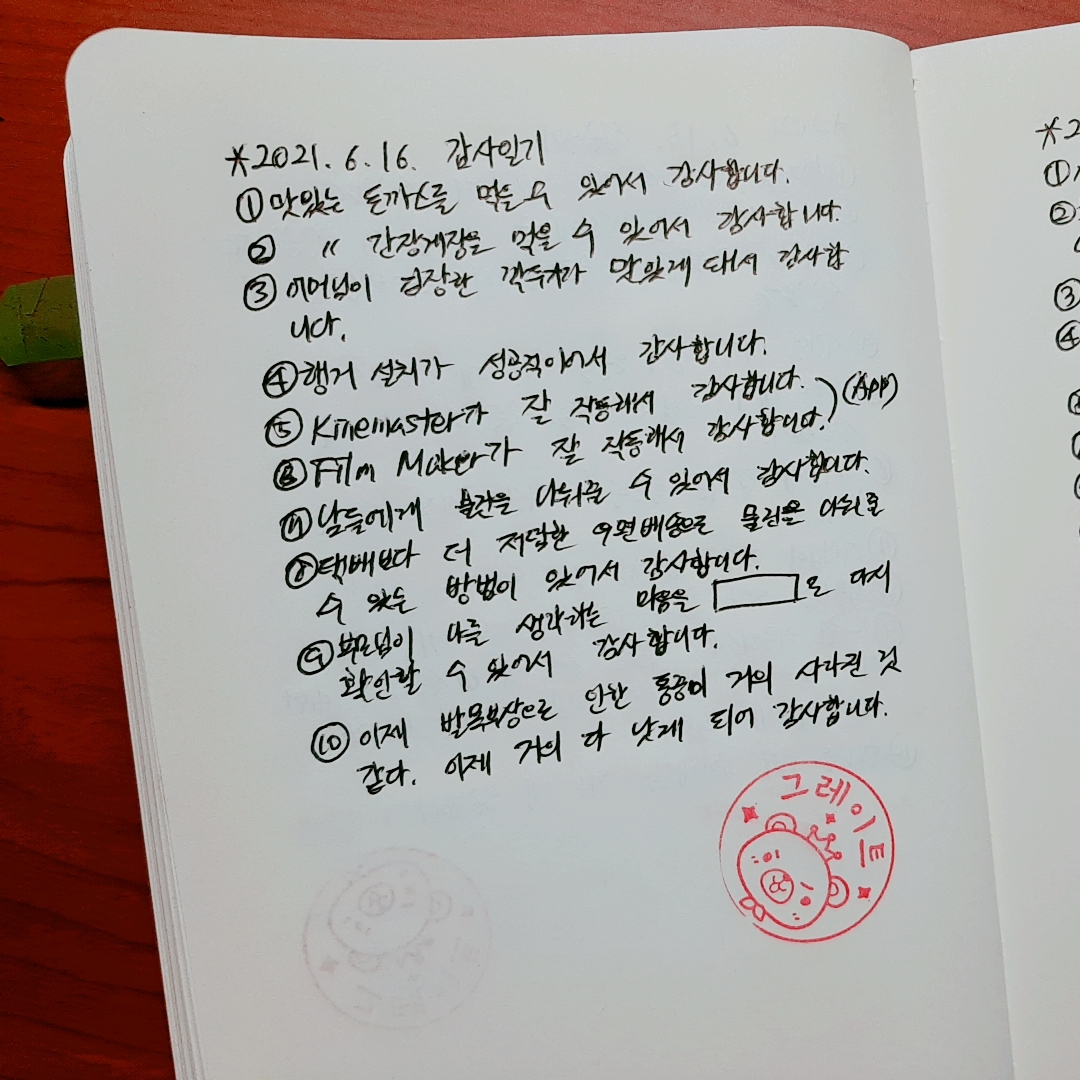 *2021. 6. 16. 감사일기
① 맛있는 돈까스를 먹을 수 있어서 감사합니다.
② 〃 간장게장을 먹을 수 있어서 감사합니다.
③ 어머님이 김장한 깍두기가 맛있게 돼서 감사합
니다.
④ 행거 설치가 성공적이어서 감사합니다.
⑤ Kinemaster가 잘 작동해서 감사합니다. (App)
⑥ Film Maker가 잘 작동해서 감사합니다.
⑦ 남들에게 물건을 나눠줄 수 있어서 감사합니다.
⑧ 택배보다 더 저렴한 우편배송으로 물건을
수 있는 방법이 있어서 감사합니다.
⑨ 부모님이 나를 생각하는 마음을 도 다시
확인할 수 있어서 감사합니다.
⑩ 이제 발목부상으로 인한 통증이 거의 사라진 것
같다. 이제 거의 다 낫게 되어 감사합니다.
그레이트
*2
①
②
③
④